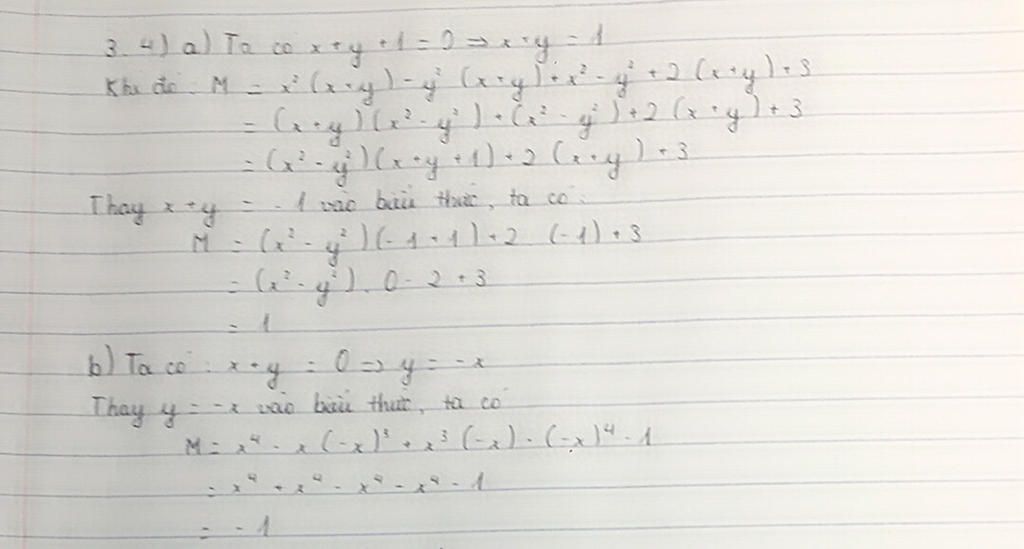 3.4) a) Ta có x + y + 1 = 0 => x + y = 1
Khi đó: M = x² (x + y) - y² (x + y) + x² - y² + 2 (x + y) + 3
= (x + y) (x² - y²) + (x² - y²) + 2 (x + y) + 3
= (x² - y²) (x + y + 1) + 2 (x + y) + 3
Thay x + y = - 1 vào biểu thức, ta có:
M = (x² - y²) (- 1 + 1) + 2 (-1) + 3
= (x² - y²) . 0 - 2 + 3
= 1
b) Ta có : x + y = 0 => y = - x
Thay y = - x vào biểu thức, ta có
M = x⁴ - x (-x)³ + x³ (-x) - (-x)⁴ - 1
= x⁴ + x⁴ - x⁴ - x⁴ - 1
= - 1